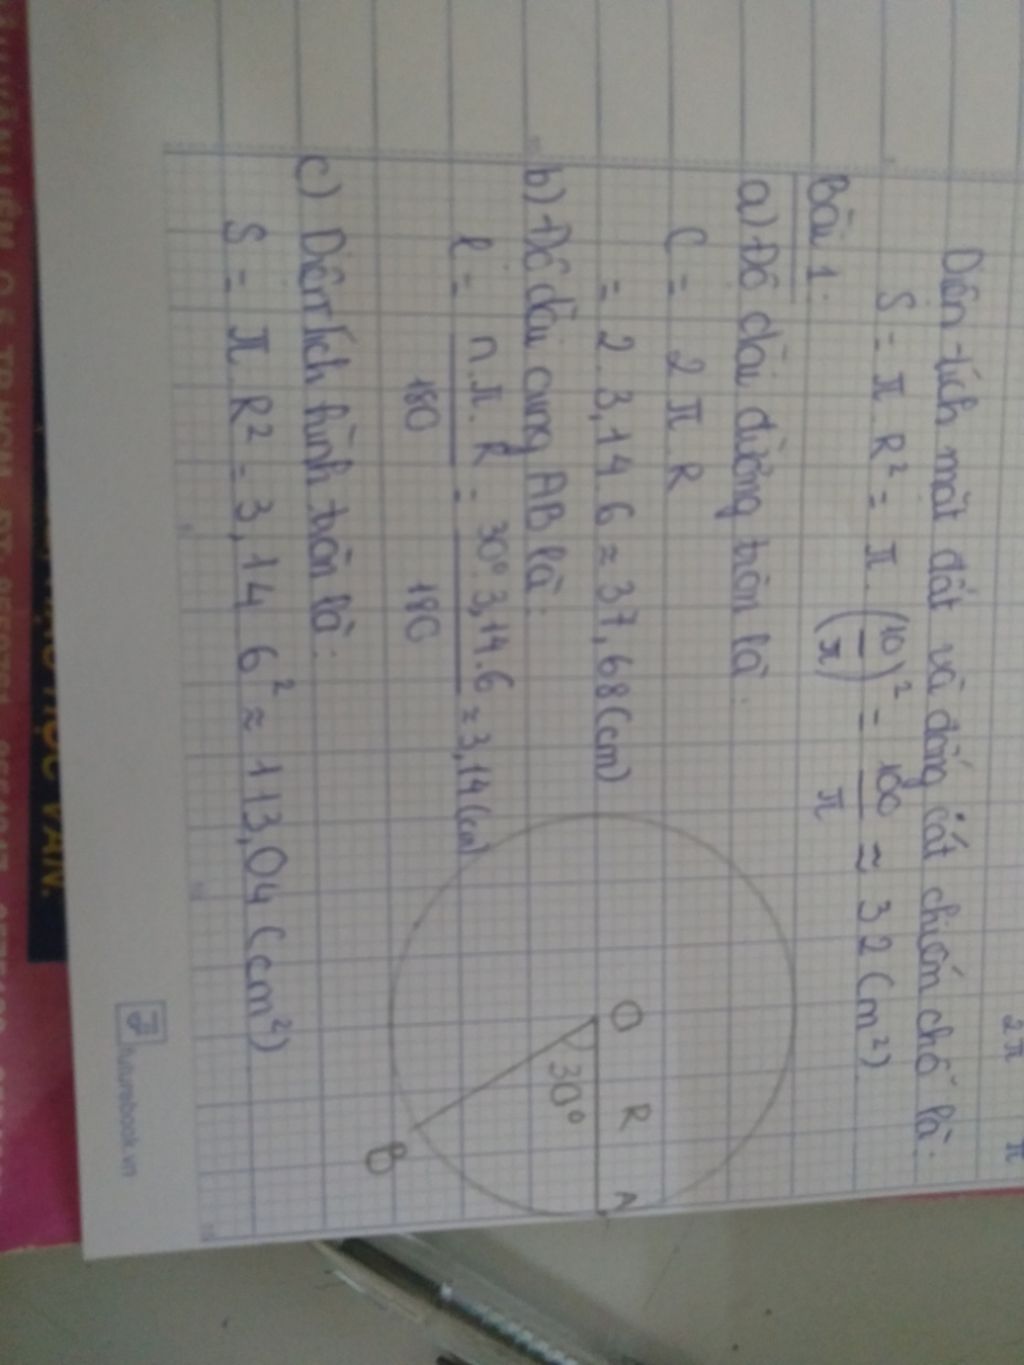 2π π
Diện tích mặt đất và đống cát chiếm chỗ là:
S = π . R² = π . (10/π)² = 100/π ≈ 32 (m²)
Bài 1:
a) Độ dài đường tròn là:
C = 2 π . R
= 2 . 3,14 . 6 ≈ 37,68 (cm)
b) Độ dài cung AB là:
l = n.π.R/180 = 30°.3,14.6/180 ≈ 3,14 (cm)
O R A
30°
B
c) Diện tích hình tròn là:
S = π . R² = 3,14 . 6² ≈ 113,04 (cm²)
futurebook.vn